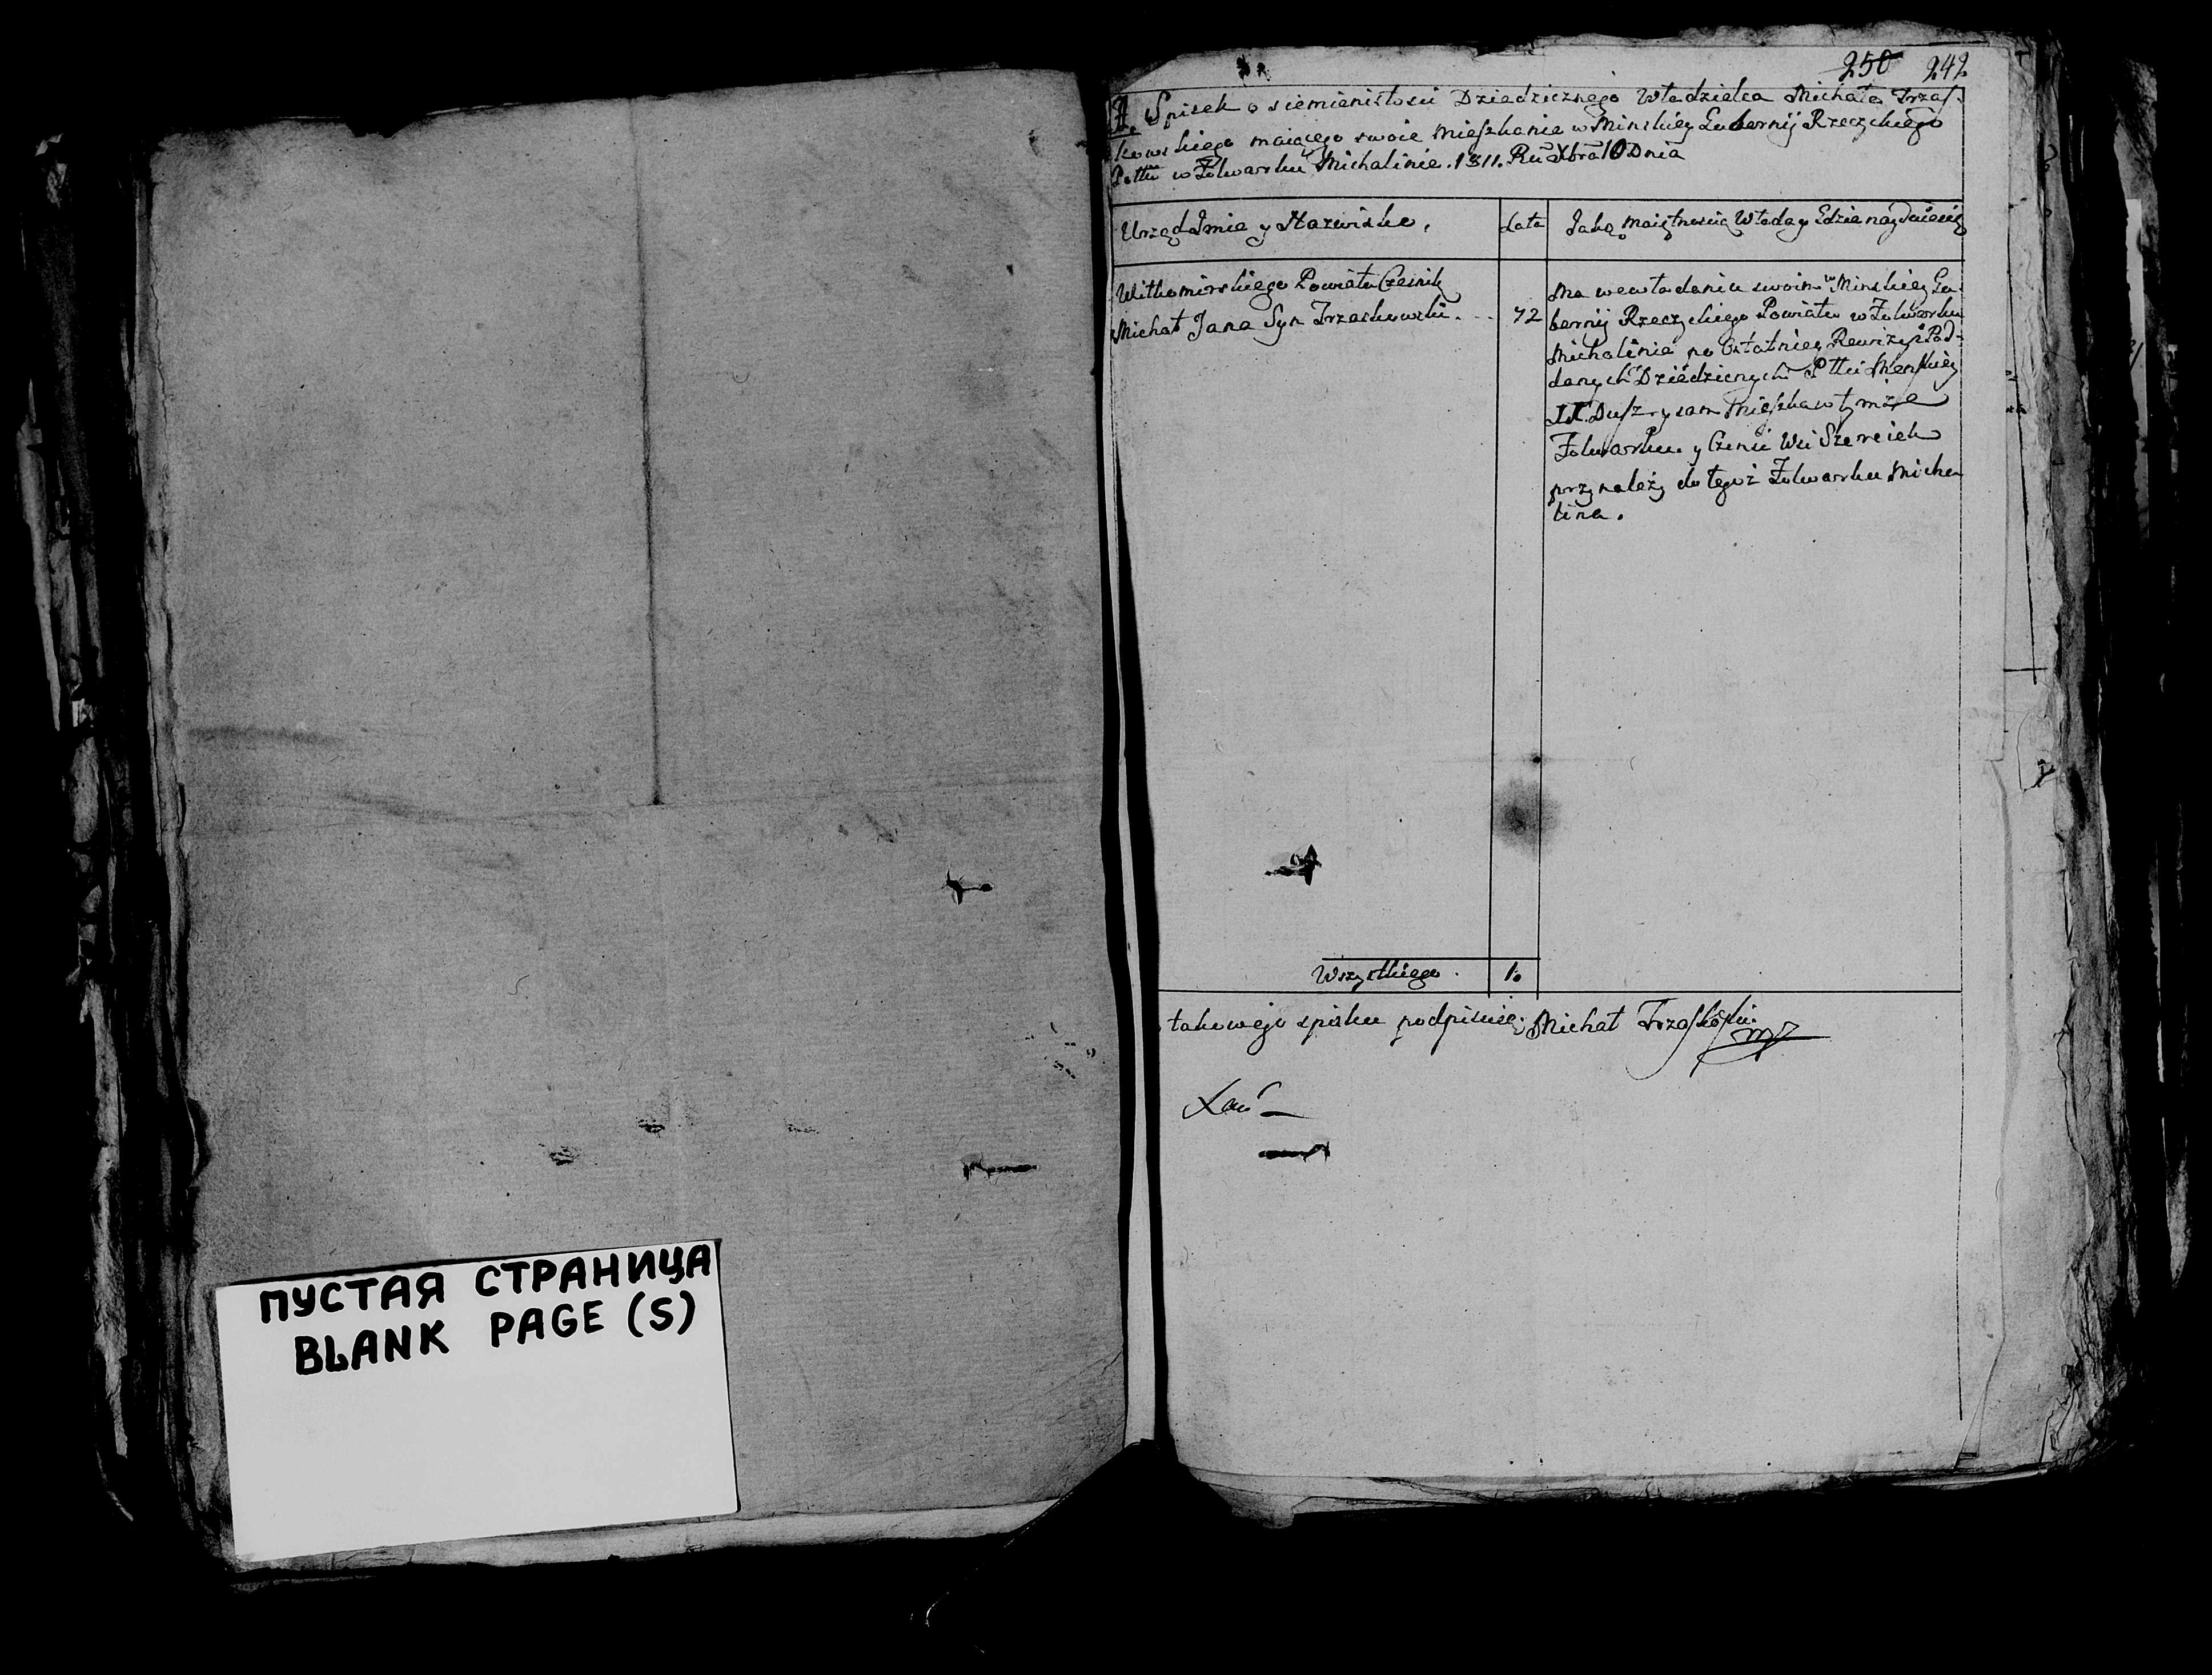 250 242
A. Spisek o siemianistosci Dziedzicznego Wladzielca Michała Trzas-
kowskiego maiącego swoie Mieszkanie w Minskiey Gubernij Rzeczyckiego
Pottu w Folwarku Michalinie. 1811. Ru Xbra 10 Dnia
Urzęd Jmie y Nazwisko.
Lata
Jaką Maiętnoscią Włada y Gdzie
Wiłkomirskiego Powiatu Czesnik
Michał Jana Syn Trzaskowski. . .
72
Ma we władaniu swoim w Minskiey Gu-
bernij Rzeczyckiego Powiatu w Folwarku
Michalinie po Ostatniey Rewizyi Pod-
danych Dziedzicnych Płci Męskiey
Dusz y sam Mieszka w tymże
Folwarku y Czensc Wsi
przynależy do tegoż Folwarku Micha
lina.
Wszystkiego . 1.
takowego spisku podpisuię. Michał Trzaskoski.
mp